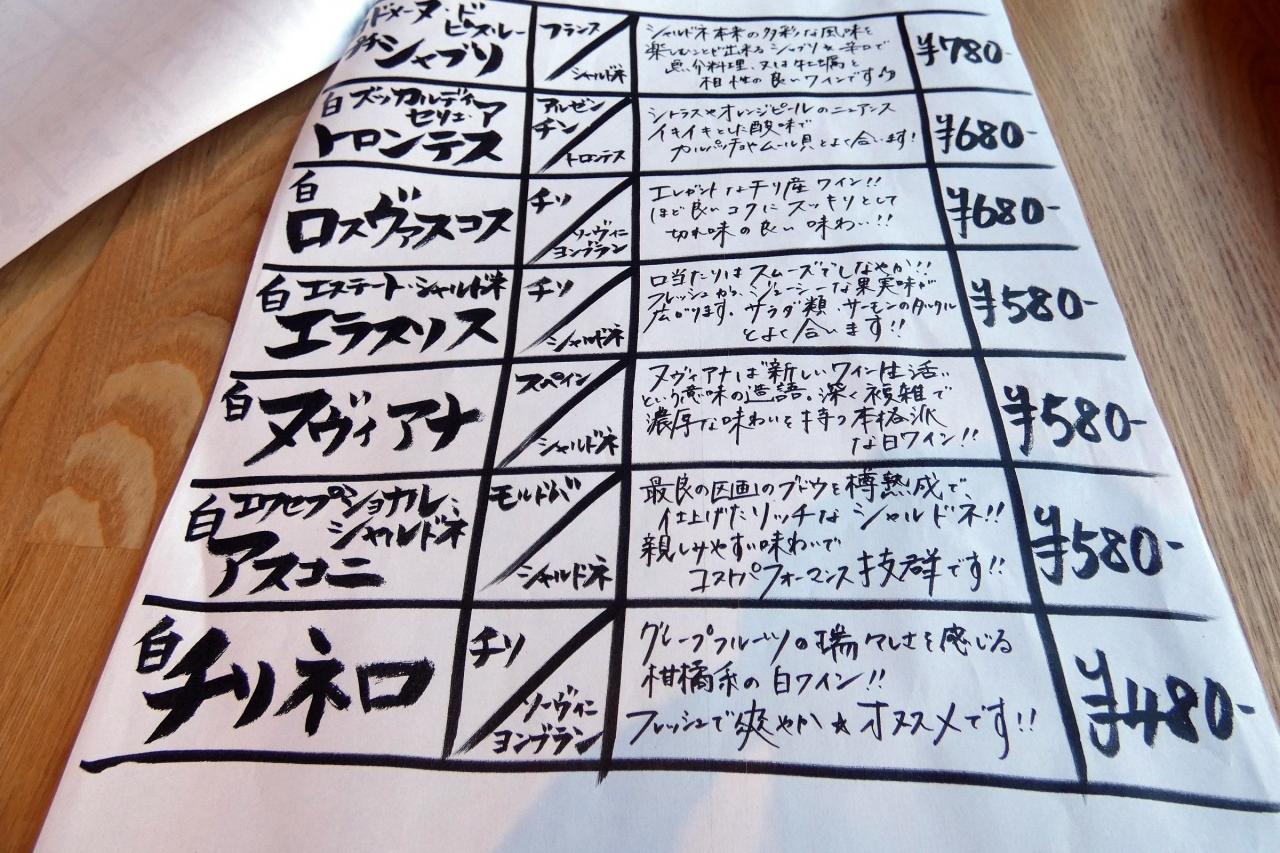 ドメーヌ・ド
ビズ・レー
シャブリ
フランス
シャルドネ
シャルドネ本来の多彩な風味を
楽しむことが出来るシャブリ☆辛口で
魚介料理、又は牡蠣と
相性の良いワインです♪
¥780-
白 ズッカルディ
セリエ・ア
トロンテス
アルゼン
チン
トロンテス
シトラスやオレンジピールのニュアンス
イキイキとした酸味で
カルパッチョやムール貝とよく合います!
¥680-
白
ロスヴァスコス
チリ
ソーヴィニ
ヨンブラン
エレガントなチリ産ワイン!!
ほど良いコクにスッキリとして
切れ味の良い味わい!!
¥680-
白 エステート・シャルドネ
エラスリス
チリ
シャルドネ
口当たりはスムーズでしなやか!!
フレッシュから、ジューシーな果実味が
広がります。サラダ類、サーモンのタルタル
とよく合います!!
¥580-
白 ヌヴィアナ
スペイン
シャルドネ
ヌヴィアナは"新しいワイン生活"
という意味の造語。深く複雑で
濃厚な味わいを持つ本格派
な白ワイン!!
¥580-
白 エクセプショナル・
シャルドネ
アスコニ
モルドバ
シャルドネ
最良の区画のブドウを樽熟成で、
仕上げたリッチなシャルドネ!!
親しみやすい味わいで
コストパフォーマンス抜群です!!
¥580-
白 チリネロ
チリ
ソーヴィニ
ヨンブラン
グレープフルーツの瑞々しさを感じる
柑橘系の白ワイン!!
フレッシュで爽やか★オススメです!!
¥480-